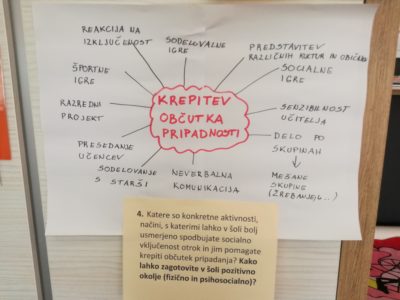 REAKCIJA NA
IZKLJUČENOST
SODELOVALNE
IGRE
PREDSTAVITEV
RAZLIČNIH KULTUR IN OBIČAJEV
SOCIALNE
IGRE
ŠPORTNE
IGRE
KREPITEV
OBČUTKA
PRIPADNOSTI
SENZIBILNOST
UČITELJA
RAZREDNI
PROJEKT
DELO PO
SKUPINAH
MEŠANE
SKUPINE
(ŽREBANJE,...)
PRESEDANJE
UČENCEV
SODELOVANJE
S STARŠI
NEVERBALNA
KOMUNIKACIJA
4. Katere so konkretne aktivnosti,
načini, s katerimi lahko v šoli bolj
usmerjeno spodbujate socialno
vključenost otrok in jim pomagate
krepiti občutek pripadanja? Kako
lahko zagotovite v šoli pozitivno
okolje (fizično in psihosocialno)?